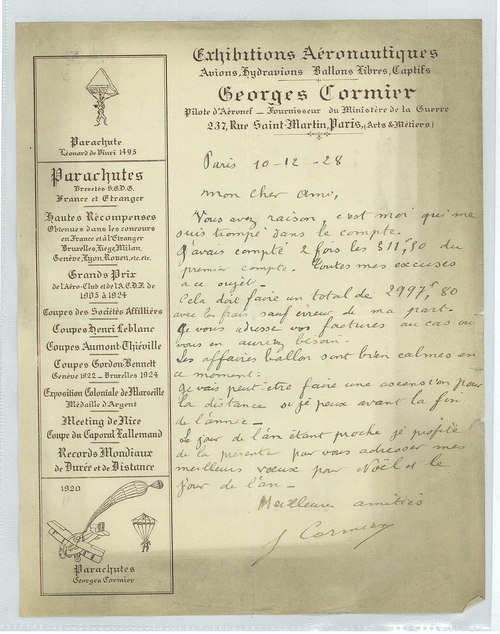 Exhibitions Aéronautiques
Avions, Hydravions Ballons Libres, Captifs
Georges Cormier
Pilote d'Aéronef — Fournisseur du Ministère de la Guerre
237, Rue Saint-Martin, Paris, (Arts & Métiers)
Parachute
Léonard de Vinci 1495
Parachutes
Brevetés S.G.D.G.
France et Etranger
Hautes Récompenses
Obtenues dans les concours
en France et à l'Etranger
Bruxelles, Liège, Milan,
Genève, Lyon, Rouen, etc. etc.
Grands Prix
de l'Aéro-Club et de l'A.C.D.F. de
1905 à 1924
Coupes des Sociétés Affiliées
Coupes Henri Leblanc
Coupes Aumont-Thiéville
Coupes Gordon-Bennett
Genève 1922 – Bruxelles 1924
Exposition Coloniale de Marseille
Médaille d'Argent
Meeting de Nice
Coupe du Caporal Lallemand
Records Mondiaux
de Durée et de Distance
1920
Parachutes
Georges Cormier
Paris 10-12-28
mon cher ami,
Vous avez raison, c'est moi qui me
suis trompé dans le compte.
J'avais compté 2 fois les 311,50 du
premier compte. Toutes mes excuses
a ce sujet.
Cela doit faire un total de 2997,80
avec les frais, sauf erreur de ma part.
Je vous adresse vos factures au cas ou
vous en auriez besoin.
Les affaires ballon sont bien calmes en
ce moment.
Je vais peut-etre faire une ascension pour
la distance si je peux avant la fin
de l'année –
Le jour de l'an étant proche je profite
de la présente pour vous adresser mes
meilleurs vœux pour Noël et le
jour de l'an –
Meilleures amitiés
J Cormier